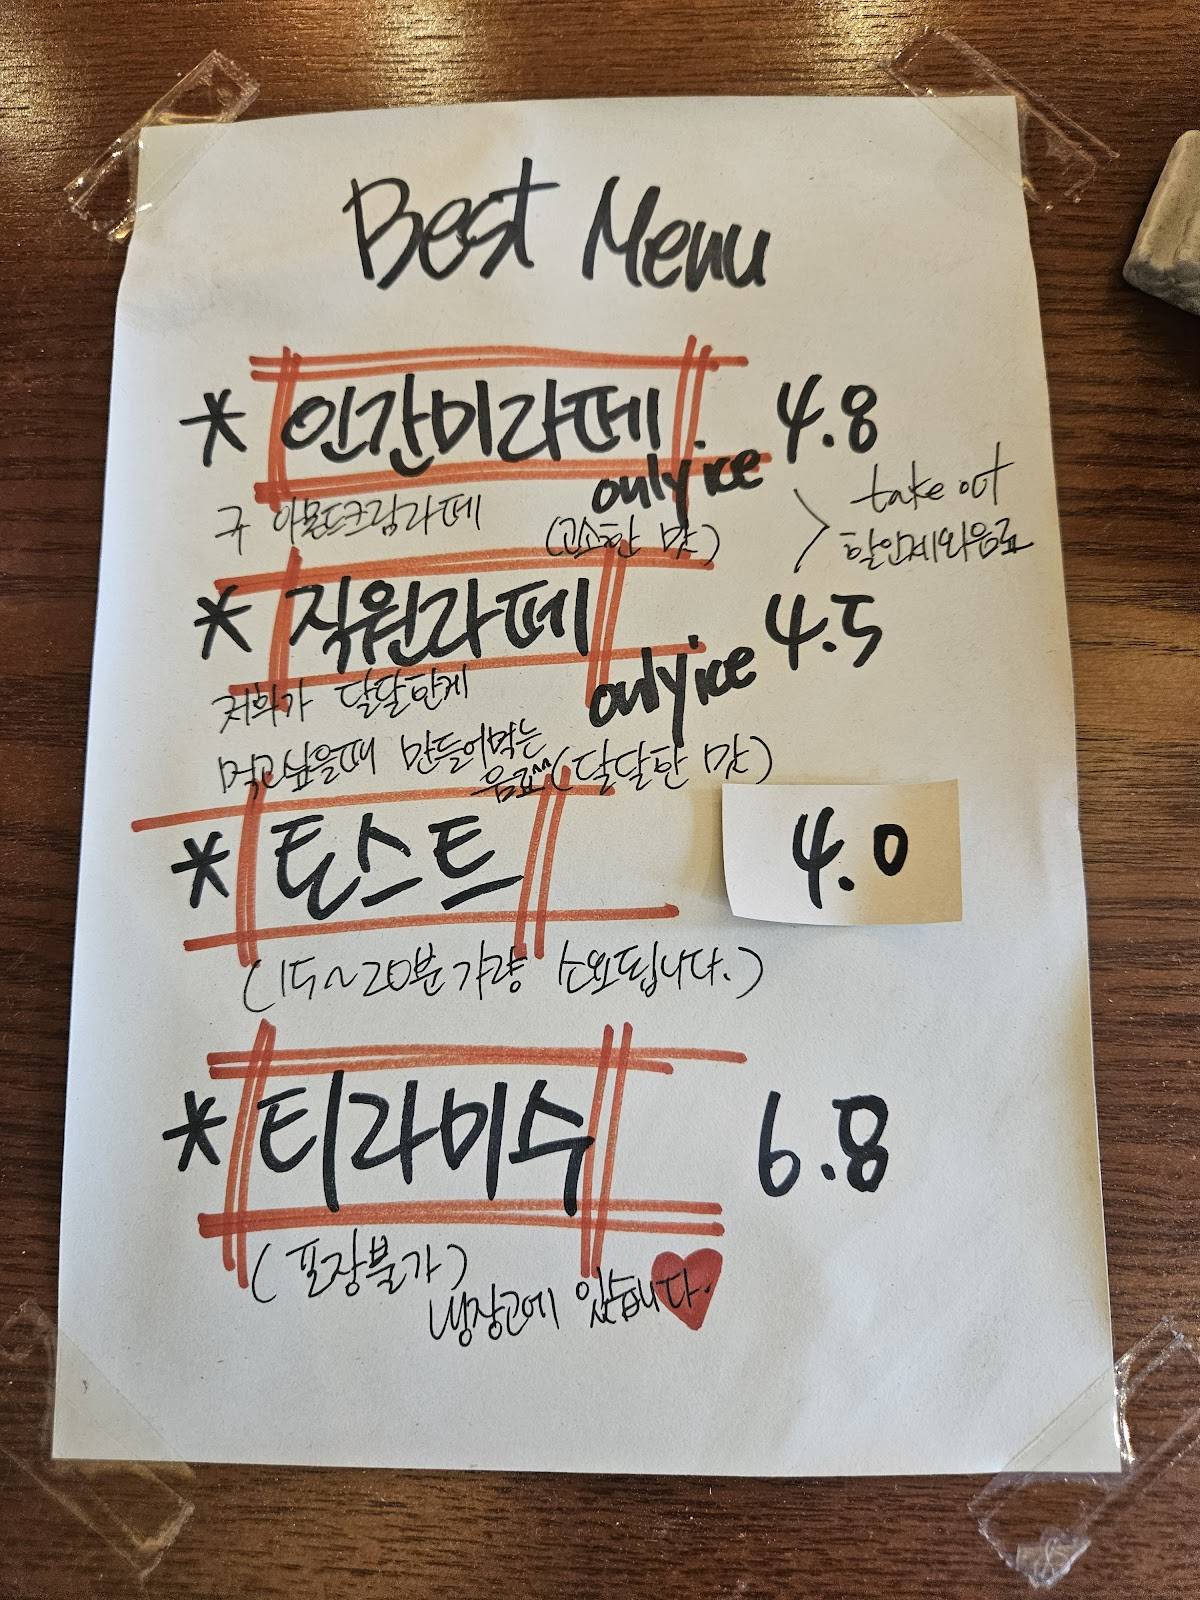 Best Menu
* 인간미라떼 4.8
only ice
구 아몬드크림라떼
(고소한 맛)
take out
할인제외음료
* 직원라떼 4.5
only ice
저희가 달달한게
먹고싶을때 만들어먹는
음료^^ (달달한 맛)
* 토스트 4.0
(15~20분가량 소요됩니다.)
* 티라미수 6.8
(포장불가)
냉장고에 있습니다.